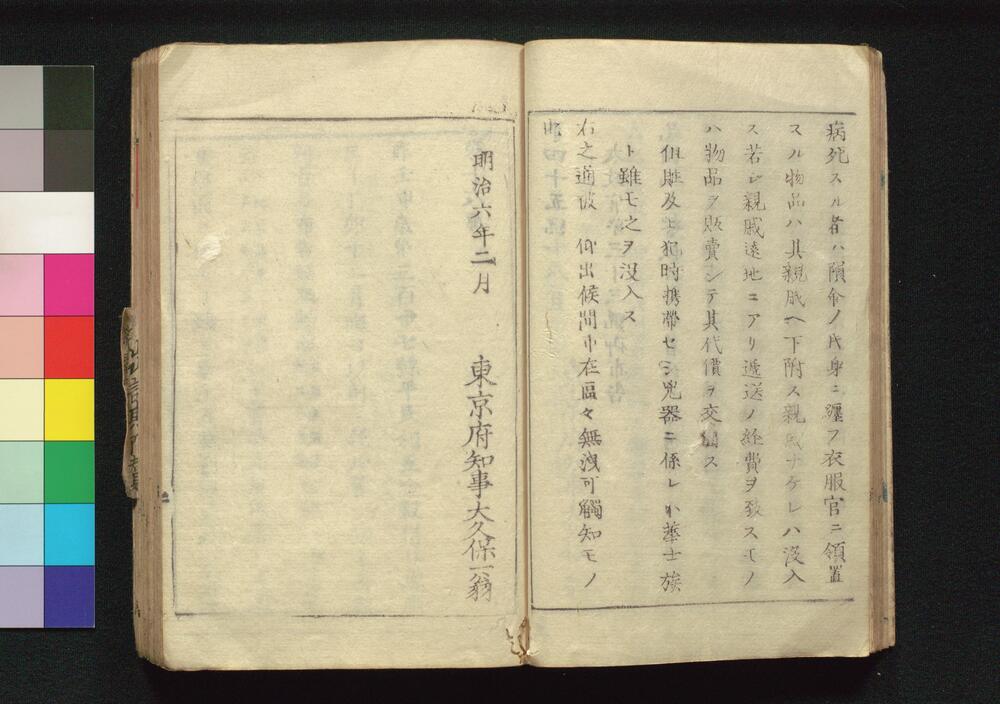 病死スル者ハ隕命ノ氏身ニ纒フ衣服官ニ領置
スル物品ハ其親戚ヘ下附ス親戚ナケレハ没入
ス若シ親戚遠地ニアリ逓送ノ経費ヲ致スモノ
ハ物品ヲ販賣シテ其代價ヲ交付ス
但賍及ヒ犯時携帶セシ兇器ニ係レハ華士族
ト雖モ之ヲ没入ス
右之通被 仰出候間市在區々無洩可觸知モノ
也
明治六年二月
東京府知事大久保一翁